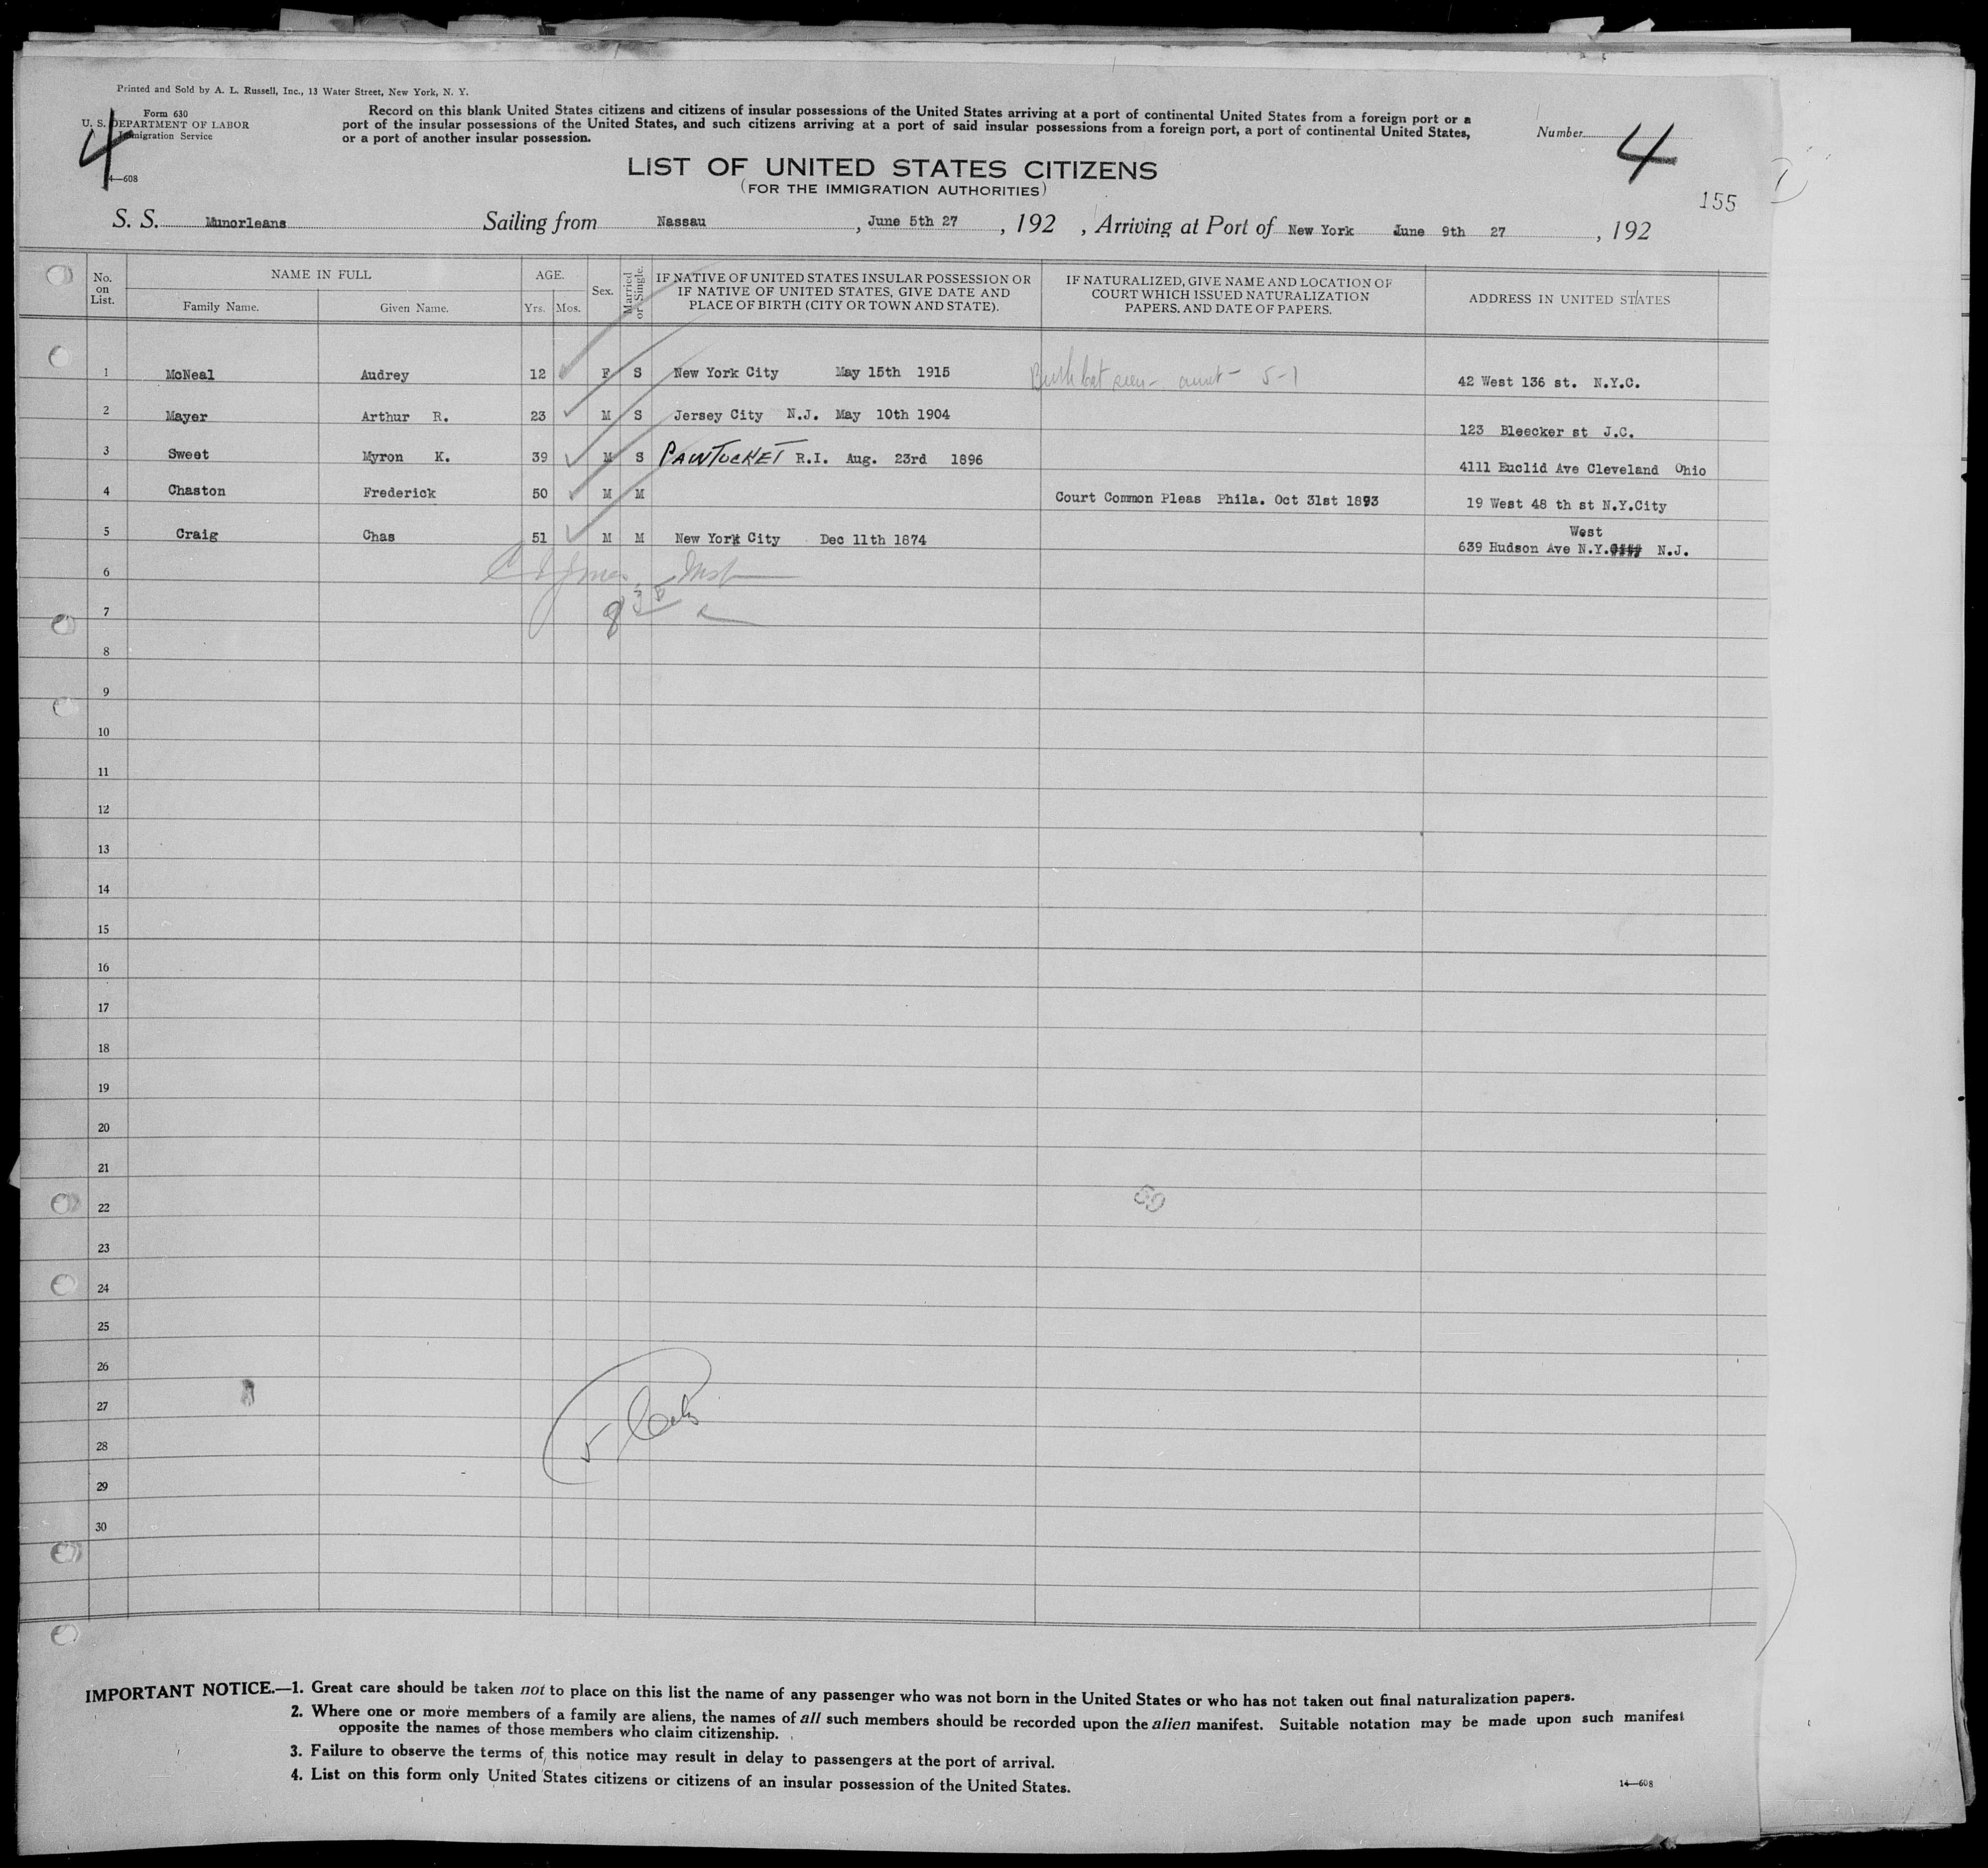 Printed and Sold by A. L. Russell, Inc., 13 Water Street, New York, N. Y.
Form 630
U. S. DEPARTMENT OF LABOR
Immigration Service
4
14—608
Record on this blank United States citizens and citizens of insular possessions of the United States arriving at a port of continental United States from a foreign port or a
port of the insular possessions of the United States, and such citizens arriving at a port of said insular possessions from a foreign port, a port of continental United States,
or a port of another insular possession.
Number 4
LIST OF UNITED STATES CITIZENS
(FOR THE IMMIGRATION AUTHORITIES)
155
S. S. Munorleans Sailing from Nassau, June 5th 27, 192 , Arriving at Port of New York June 9th 27, 192
No. on List. NAME IN FULL AGE. Sex. Married or Single. IF NATIVE OF UNITED STATES INSULAR POSSESSION OR IF NATIVE OF UNITED STATES, GIVE DATE AND PLACE OF BIRTH (CITY OR TOWN AND STATE). IF NATURALIZED, GIVE NAME AND LOCATION OF COURT WHICH ISSUED NATURALIZATION PAPERS, AND DATE OF PAPERS. ADDRESS IN UNITED STATES
Family Name. Given Name. Yrs. Mos.
1 McNeal Audrey 12 F S New York City May 15th 1915 5-1 42 West 136 st. N.Y.C.
2 Mayer Arthur R. 23 M S Jersey City N.J. May 10th 1904 123 Bleecker st J.C.
3 Sweet Myron K. 39 M S PAWTUCKET R.I. Aug. 23rd 1896 4111 Euclid Ave Cleveland Ohio
4 Chaston Frederick 50 M M Court Common Pleas Phila. Oct 31st 1893 19 West 48 th st N.Y.City
5 Craig Chas 51 M M New York City Dec 11th 1874 639 Hudson Ave West N.Y. N.J.
6
7
8
9
10
11
12
13
14
15
16
17
18
19
20
21
22
23
24
25
26
27
28
29
30
IMPORTANT NOTICE.—1. Great care should be taken not to place on this list the name of any passenger who was not born in the United States or who has not taken out final naturalization papers.
2. Where one or more members of a family are aliens, the names of all such members should be recorded upon the alien manifest. Suitable notation may be made upon such manifest
opposite the names of those members who claim citizenship.
3. Failure to observe the terms of this notice may result in delay to passengers at the port of arrival.
4. List on this form only United States citizens or citizens of an insular possession of the United States.
14—608